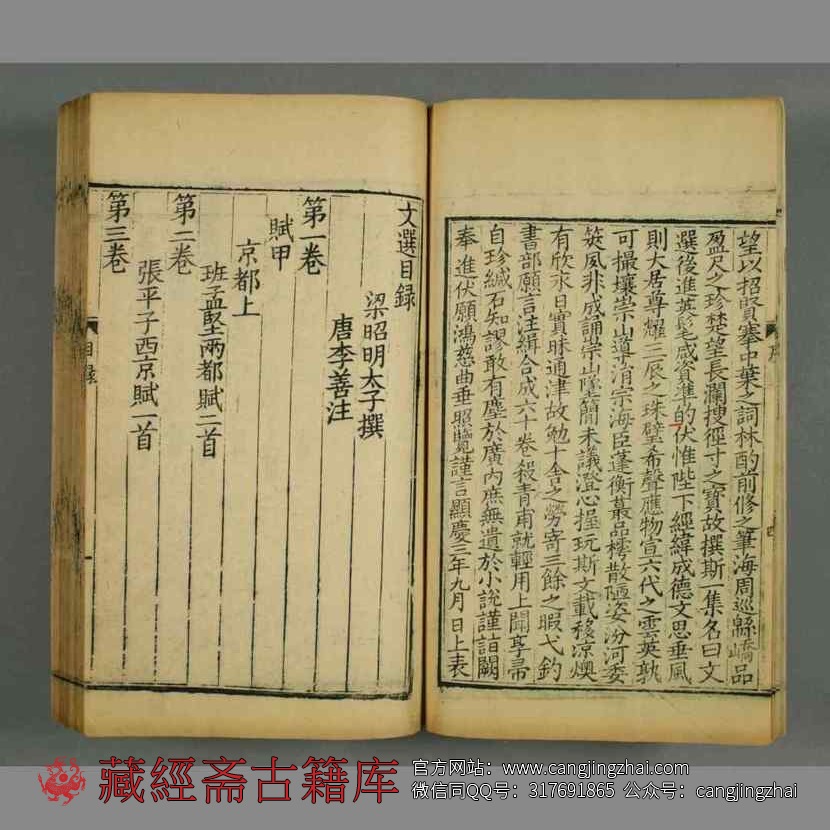 望以招賢搴中葉之詞林酌前修之筆海周巡緜嶠品
盈尺之珍楚望長瀾搜徑寸之寶故撰斯一集名曰文
選後進英髦咸資準的伏惟陛下經緯成德文思垂風
則大居尊耀三辰之珠璧希聲應物宣六代之雲英孰
可撮壤崇山導涓宗海臣蓬衡蕞品樗散陋姿汾河委
筴夙非成誦崇山墜簡未議澄心握玩斯文載移涼燠
有欣永日實昧通津故勉十舍之勞寄三餘之暇弋釣
書部願言注緝合成六十卷殺青甫就輕用上聞享帚
自珍緘石知謬敢有塵於廣內庶無遺於小說謹詣闕
奉進伏願鴻慈曲垂照覽謹言顯慶三年九月日上表
文選目録
梁昭明太子撰
唐李善注
第一卷
賦甲
京都上
班孟堅兩都賦二首
第二卷
張平子西京賦一首
第三卷
目録
藏經斋古籍库
官方网站：www.cangjingzhai.com
微信同QQ号：317691865 公众号：cangjingzhai